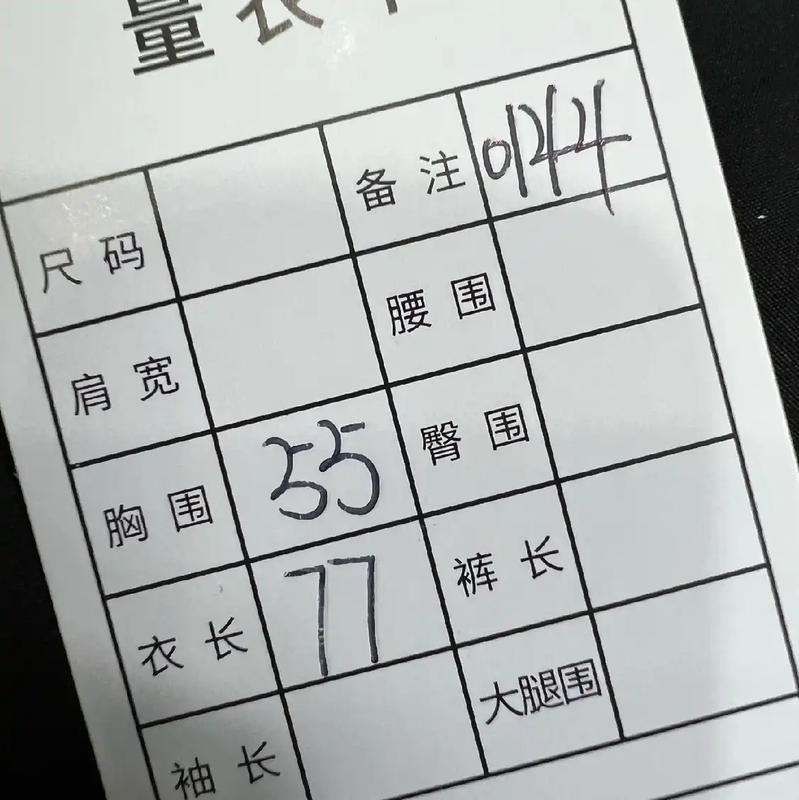 量衣
尺码 备注 0144
肩宽 腰围
胸围 55 臀围
衣长 77 裤长
袖长 大腿围